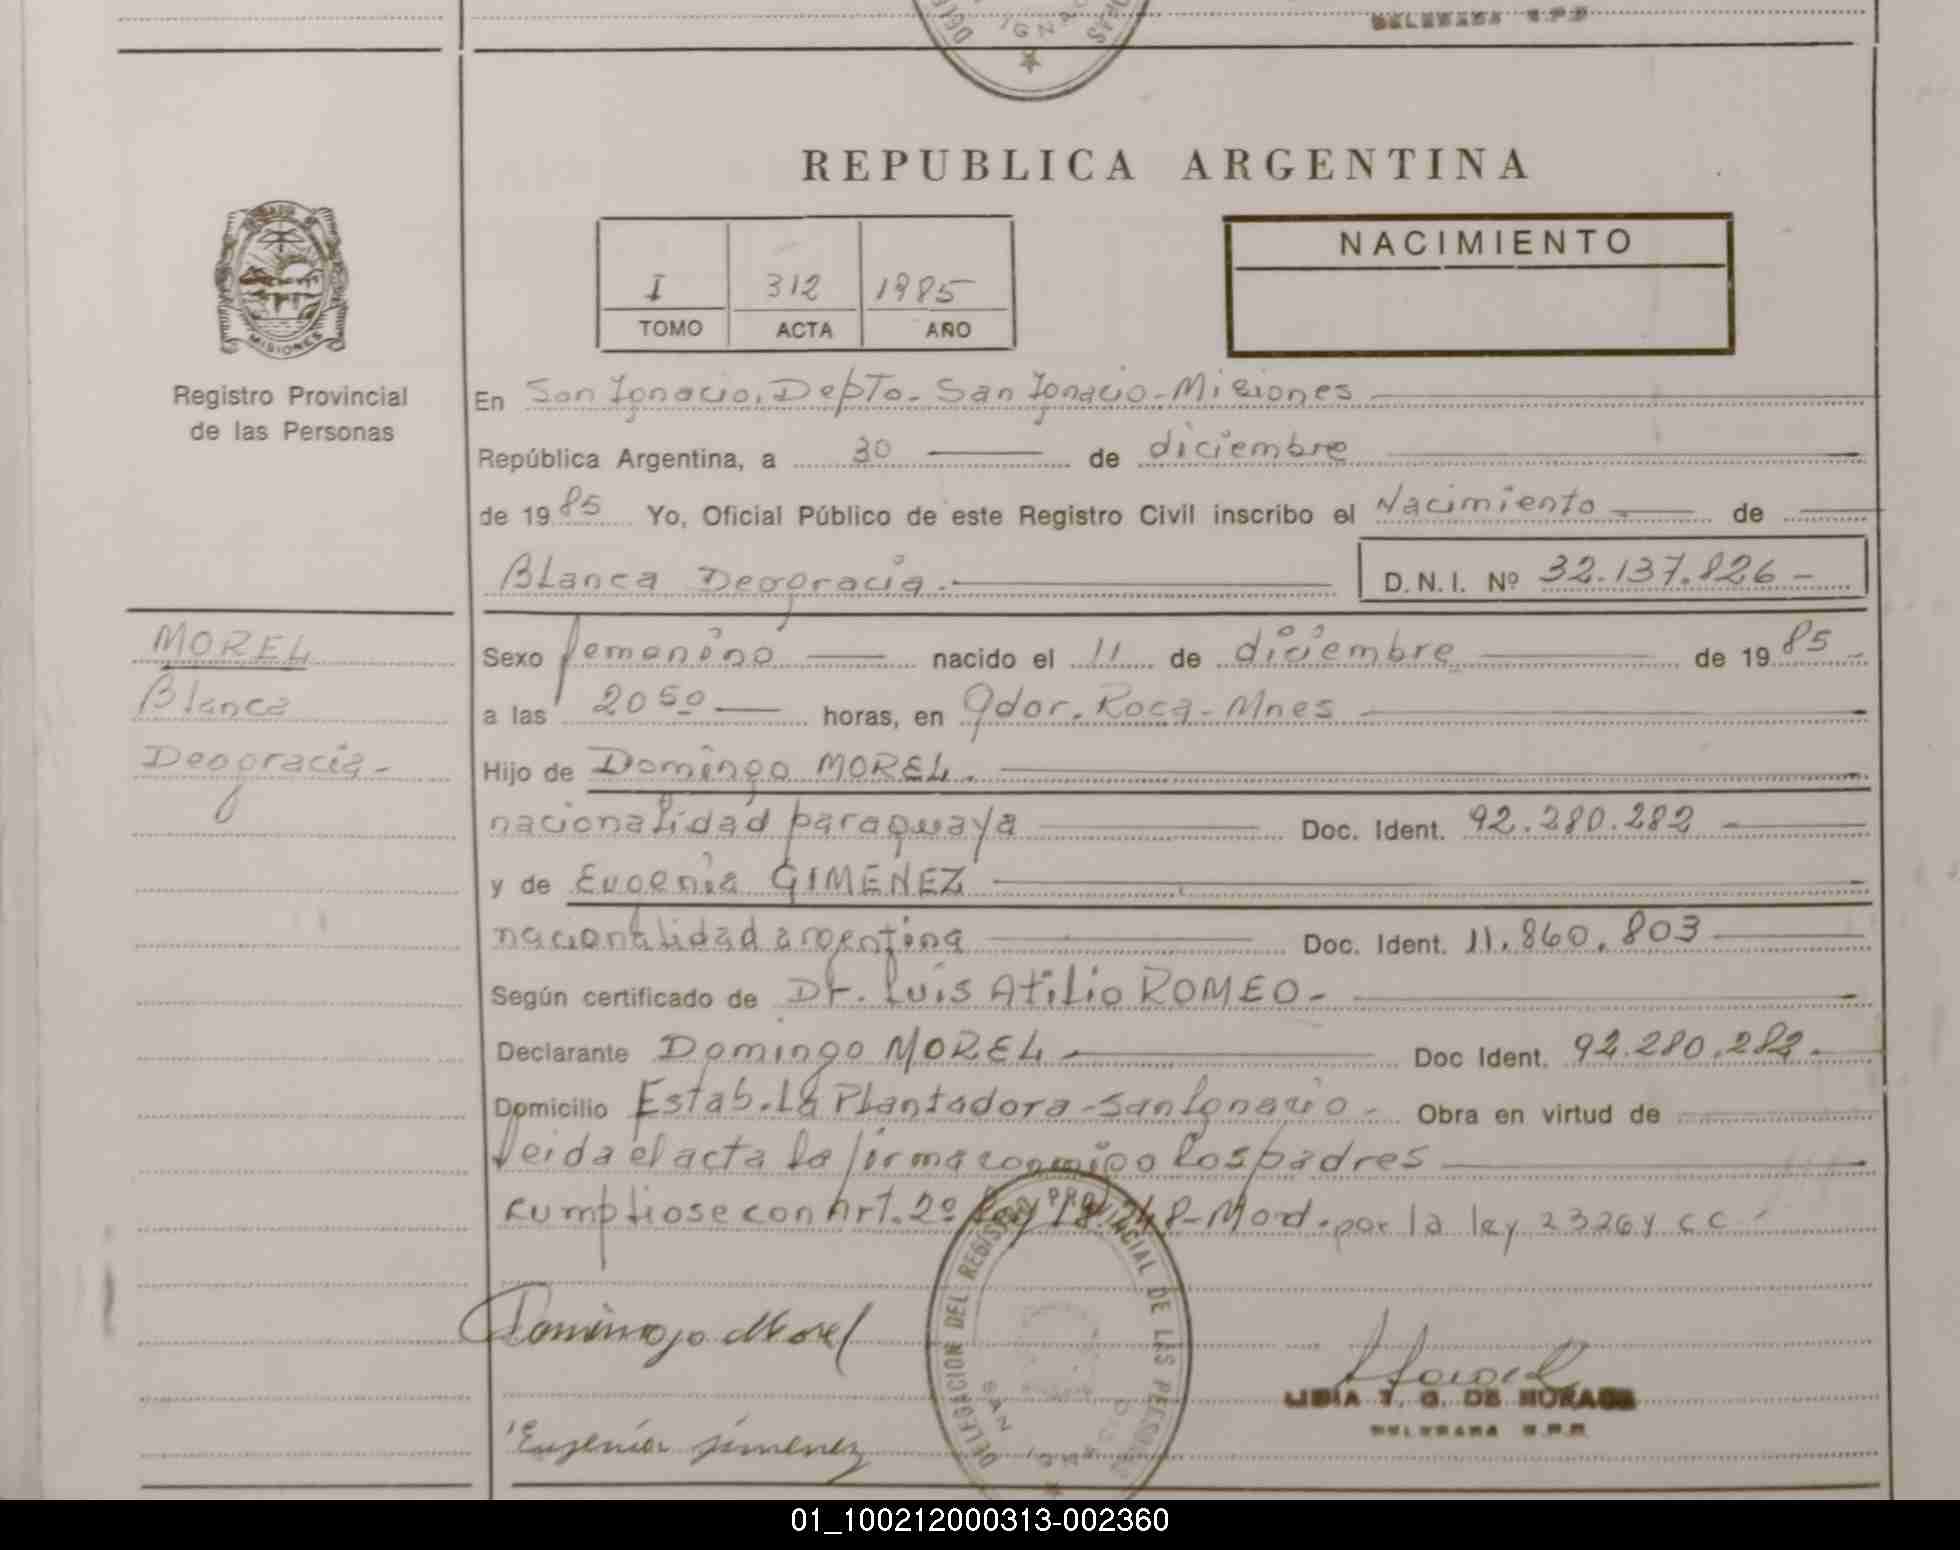 REPUBLICA ARGENTINA
NACIMIENTO
I 312 1985
TOMO ACTA AÑO
MISIONES
Registro Provincial
de las Personas
En San Ignacio, Depto. San Ignacio - Misiones
República Argentina, a 30 de diciembre
de 1985 Yo, Oficial Público de este Registro Civil inscribo el Nacimiento de
Blanca Deogracia.
D.N.I. Nº 32.137.826 -
MOREL
Blanca
Deogracia -
Sexo femenino nacido el 11 de diciembre de 1985 -
a las 20 50 horas, en Gdor. Roca - Mnes
Hijo de Domingo MOREL.
nacionalidad paraguaya Doc. Ident. 92.280.282
y de Eugenia GIMENEZ
nacionalidad argentina Doc. Ident. 11.860.803
Según certificado de Dr. Luis Atilio ROMEO -
Declarante Domingo MOREL - Doc Ident. 92.280.282 -
Domicilio Estab. La Plantadora - San Ignacio - Obra en virtud de
leida el acta la firma conmigo los padres
cumpliose con Art. 2º Ley 18.248 - Mod. por la ley 23264 CC -
Domingo Morel
Eugenia Jimenez
DELEGACION DEL REGISTRO PROVINCIAL DE LAS PERSONAS
SAN
LIDIA T. G. DE
DELEGADA R.P.P.
01_100212000313-002360